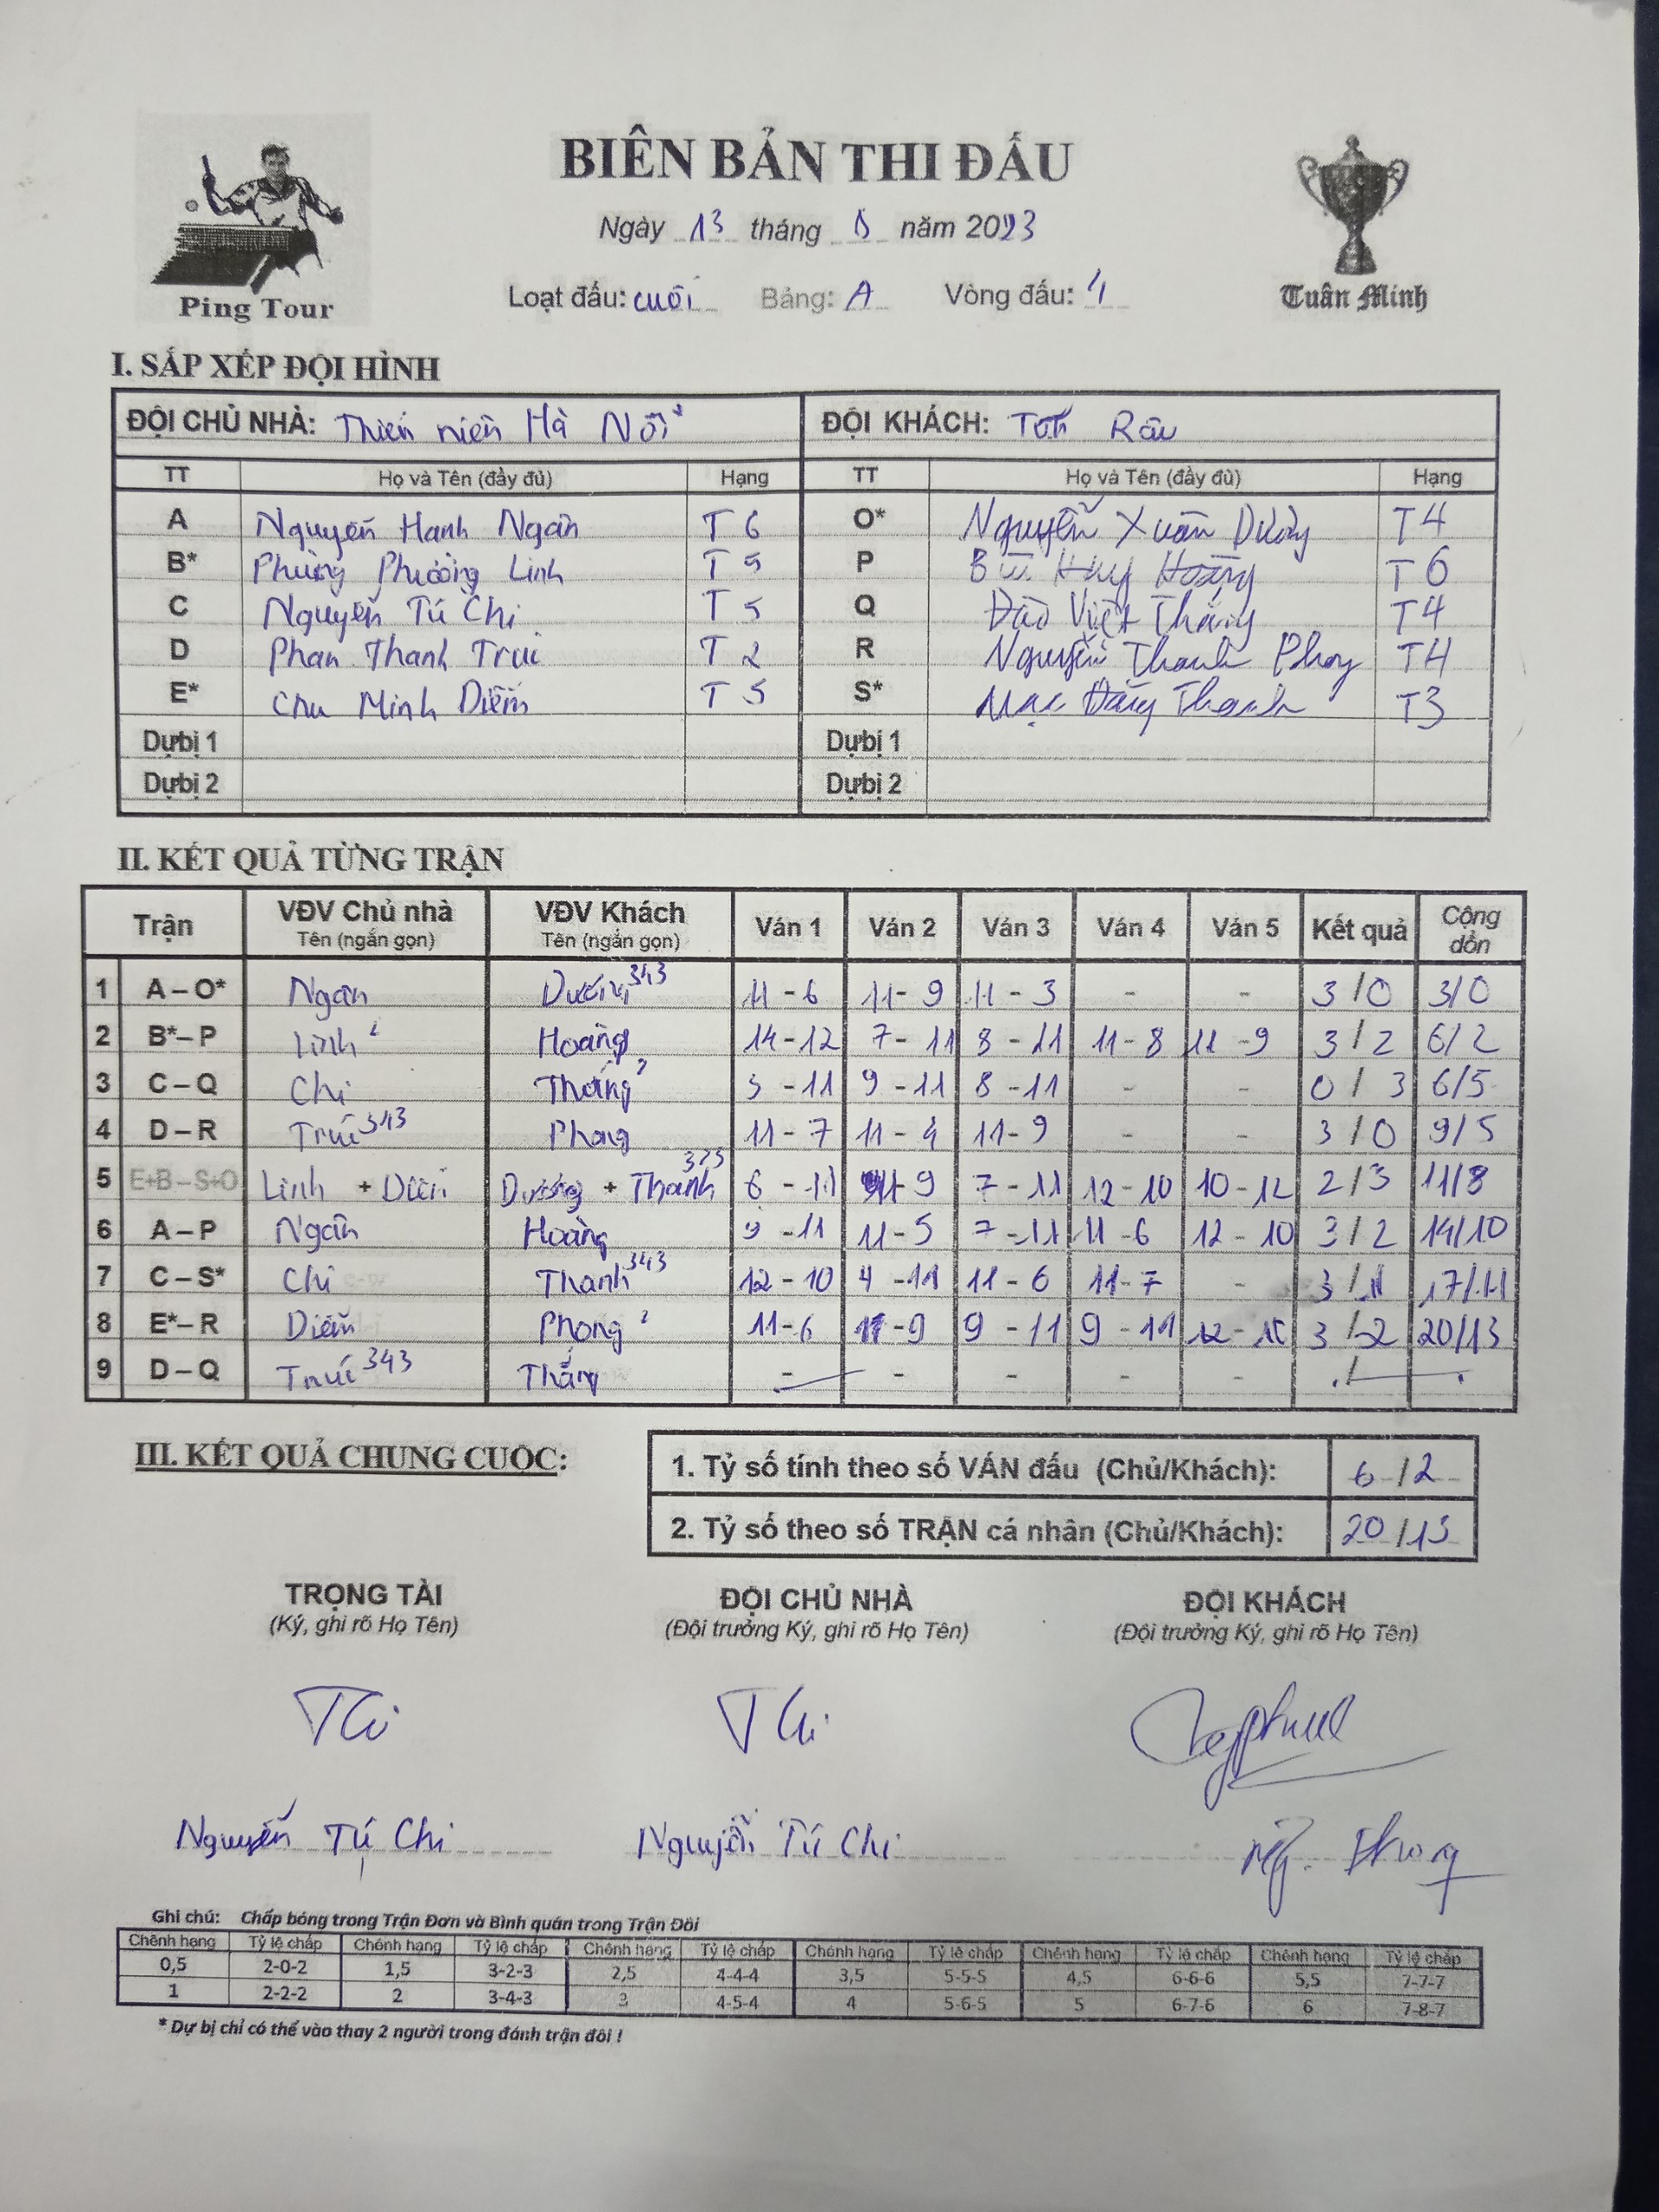 BIÊN BẢN THI ĐẤU
Ngày 13 tháng 8 năm 2023
Loạt đấu: cuối Bảng: A Vòng đấu: 4
Ping Tour
Tuấn Minh
I. SẮP XẾP ĐỘI HÌNH
ĐỘI CHỦ NHÀ: Thiên niên Hà Nội ĐỘI KHÁCH: Râu
TT Họ và Tên (đầy đủ) Hạng TT Họ và Tên (đầy đủ) Hạng
A Nguyễn Hạnh Ngân T6 O* Nguyễn Xuân Dương T4
B* Phùng Phương Linh T5 P Bùi Huy Hoàng T6
C Nguyễn Tú Chi T5 Q Đào Việt Thắng T4
D Phan Thanh Trúc T2 R Nguyễn Thanh Phong T4
E* Chu Minh Diễm T5 S* Mạc Đăng Thanh T3
Dự bị 1 Dự bị 1
Dự bị 2 Dự bị 2
II. KẾT QUẢ TỪNG TRẬN
Trận VĐV Chủ nhà VĐV Khách Ván 1 Ván 2 Ván 3 Ván 4 Ván 5 Kết quả Cộng dồn
Tên (ngắn gọn) Tên (ngắn gọn)
1 A – O* Ngân Dương 343 11 - 6 11 - 9 11 - 3 - - 3 / 0 3/0
2 B* – P Linh 2 Hoàng 14 - 12 7 - 11 8 - 11 11 - 8 11 - 9 3 / 2 6/2
3 C – Q Chi Thắng 2 5 - 11 9 - 11 8 - 11 - - 0 / 3 6/5
4 D – R Trúc 343 Phong 11 - 7 11 - 4 11 - 9 - - 3 / 0 9/5
5 E+B – S+O Linh + Diễm Dương + Thanh 323 6 - 11 11 - 9 7 - 11 12 - 10 10 - 12 2 / 3 11/8
6 A – P Ngân Hoàng 9 - 11 11 - 5 7 - 11 11 - 6 12 - 10 3 / 2 14/10
7 C – S* Chi Thanh 343 12 - 10 4 - 11 11 - 6 11 - 7 - 3 / 1 17/11
8 E* – R Diễm Phong 2 11 - 6 11 - 9 9 - 11 9 - 11 12 - 10 3 / 2 20/13
9 D – Q Trúc 343 Thắng - - - - - /
III. KẾT QUẢ CHUNG CUỘC:
1. Tỷ số tính theo số VÁN đấu (Chủ/Khách): 6 / 2
2. Tỷ số theo số TRẬN cá nhân (Chủ/Khách): 20 / 13
TRỌNG TÀI ĐỘI CHỦ NHÀ ĐỘI KHÁCH
(Ký, ghi rõ Họ Tên) (Đội trưởng Ký, ghi rõ Họ Tên) (Đội trưởng Ký, ghi rõ Họ Tên)
Nguyễn Tú Chi Nguyễn Tú Chi
Ghi chú: Chấp bóng trong Trận Đơn và Bình quân trong Trận Đôi
Chênh hạng Tỷ lệ chấp Chênh hạng Tỷ lệ chấp Chênh hạng Tỷ lệ chấp Chênh hạng Tỷ lệ chấp Chênh hạng Tỷ lệ chấp Chênh hạng Tỷ lệ chấp
0,5 2-0-2 1,5 3-2-3 2,5 4-4-4 3,5 5-5-5 4,5 6-6-6 5,5 7-7-7
1 2-2-2 2 3-4-3 3 4-5-4 4 5-6-5 5 6-7-6 6 7-8-7
* Dự bị chỉ có thể vào thay 2 người trong đánh trận đôi !